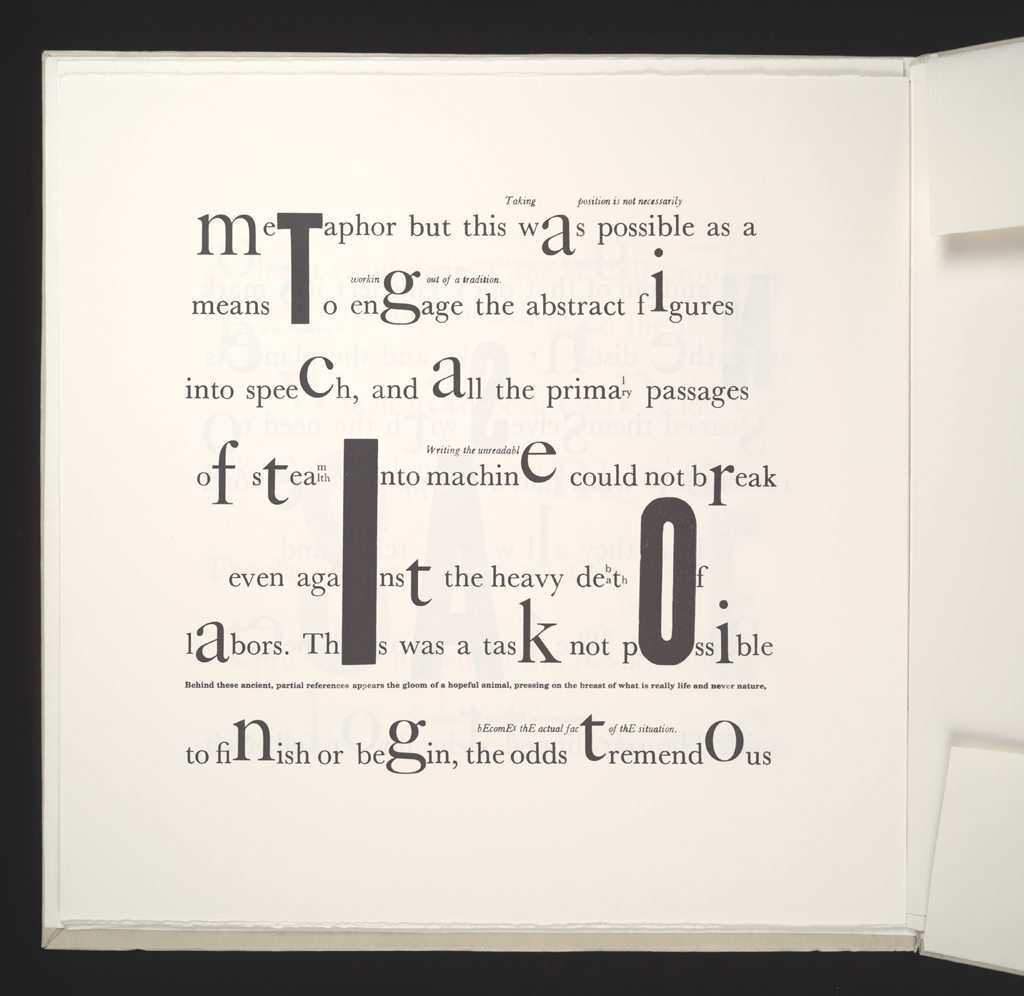 Taking a position is not necessarily
meTaphor but this was possible as a
working out of a tradition.
means To engage the abstract figures
into speech, and all the primalry passages
Writing the unreadable
of steamlth Into machine could not break
even agaInst the heavy debath Of
labors. ThIs was a task not pOssible
Behind these ancient, partial references appears the gloom of a hopeful animal, pressing on the breast of what is really life and never nature,
bEcomEs thE actual fact of thE situation.
to finish or begin, the odds tremendous